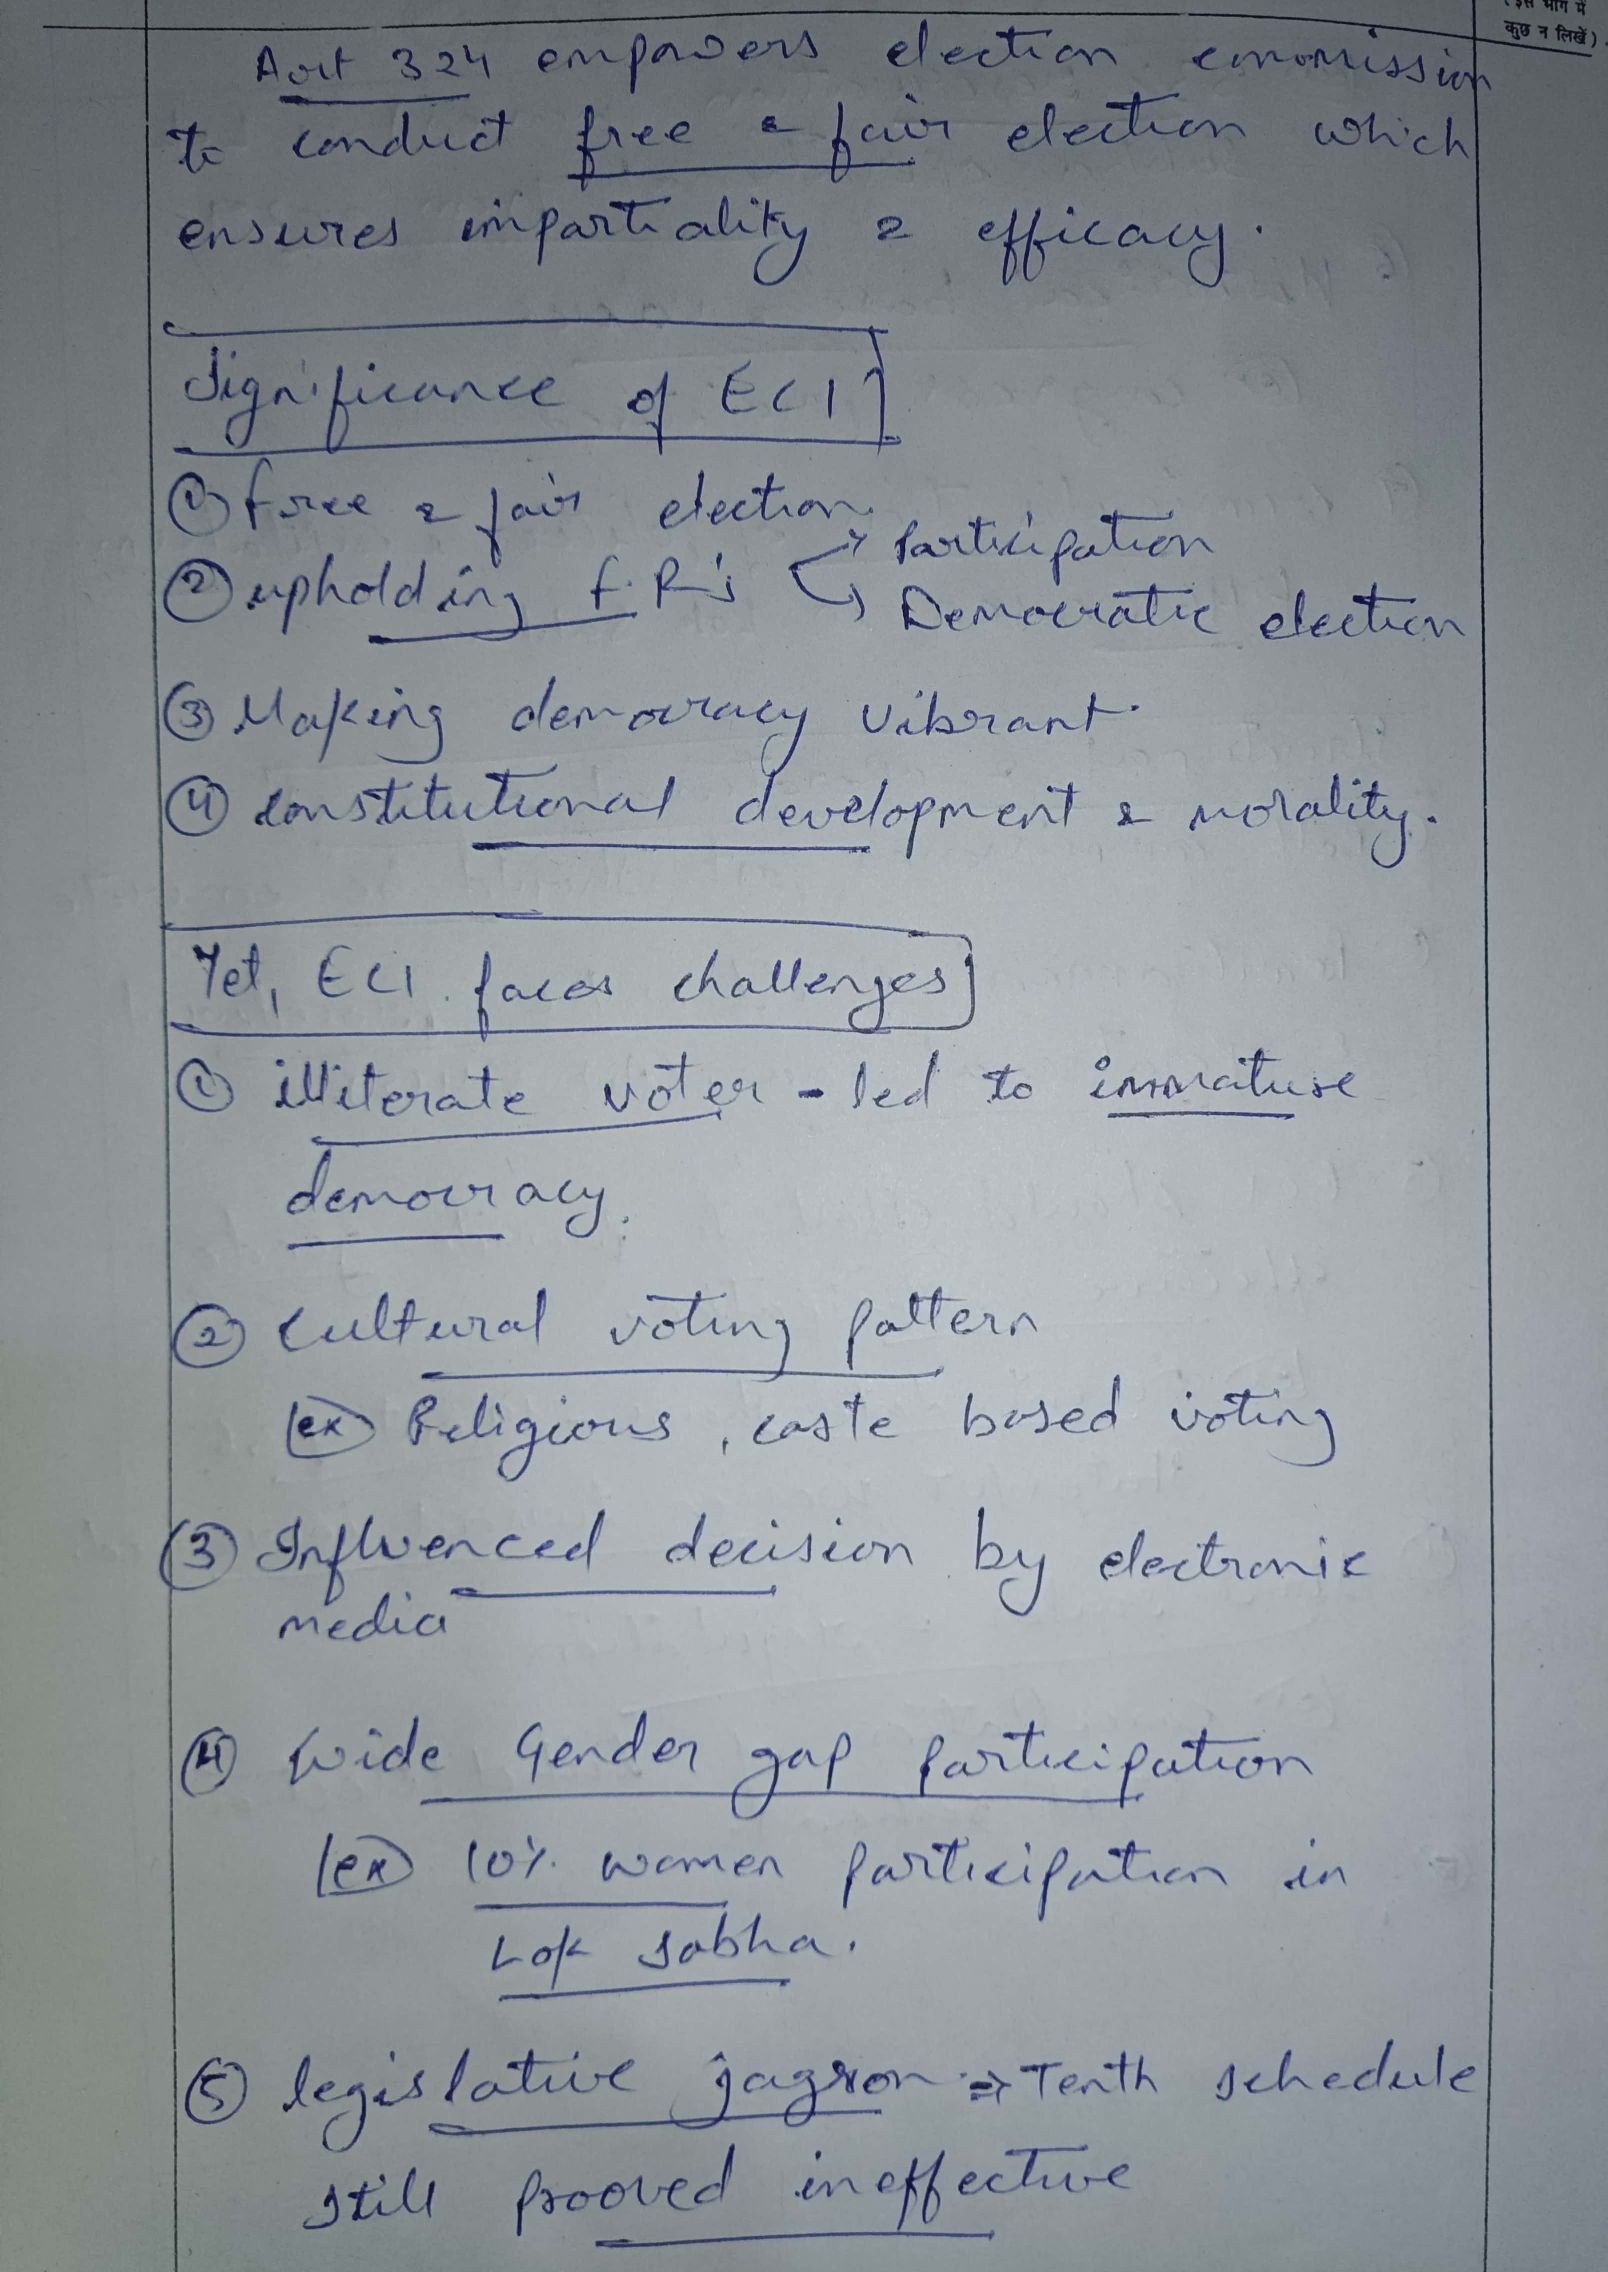 (इस भाग में
कुछ न लिखें)
Art 324 empowers election commission
to conduct free & fair election which
ensures impartiality & efficacy.
Significance of ECI
① free & fair election
② upholding F.R's → Participation
→ Democratic election
③ Making democracy vibrant.
④ constitutional development & morality.
Yet, ECI faces challenges
① illiterate voter - led to immature
democracy.
② cultural voting pattern
ex Religious, caste based voting
③ Influenced decision by electronic
media
④ Wide Gender gap participation
ex 10% women participation in
Lok sabha.
⑤ legislative jagron ⇒ Tenth schedule
still prooved ineffective